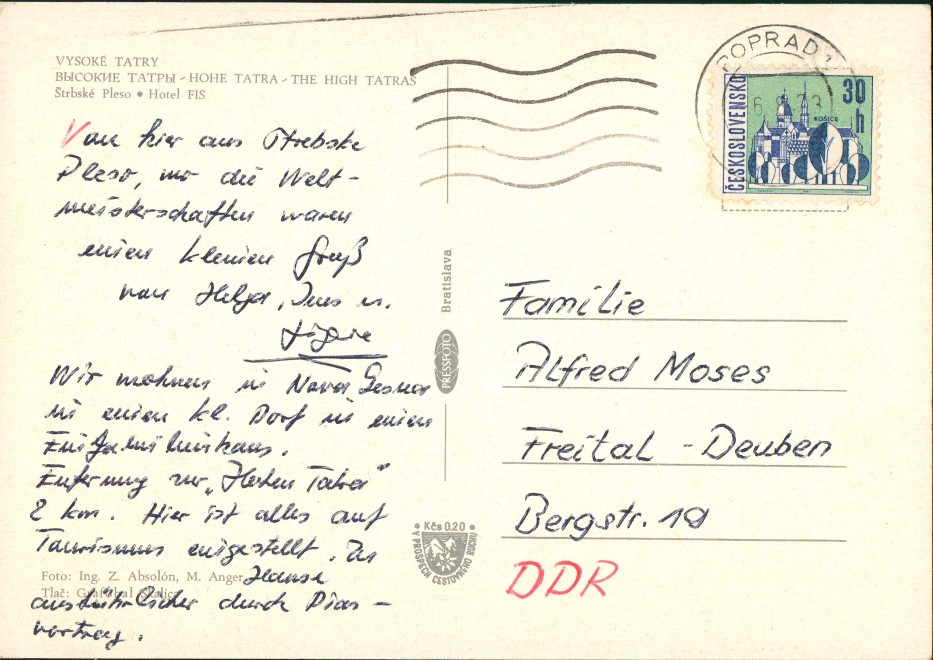 VYSOKÉ TATRY
ВЫСОКИЕ ТАТРЫ - HOHE TATRA - THE HIGH TATRAS
Štrbské Pleso • Hotel FIS
Von hier aus Strbske
Pleso, wo die Welt-
meisterschaften waren
einen kleinen Gruß
von Helga, Ines u.
Wir wohnen in Nova Lesna
in einen kl. Dorf in einen
Einfamilienhaus.
Entfernung zur „Hohen Tatra"
2 km. Hier ist alles auf
Tourismus eingestellt. Zu
Hause
ausführlicher durch Dias-
vortrag.
Foto: Ing. Z. Absolón, M. Anger
Tlač: Grafobal Skalica
PRESSFOTO Bratislava
Kčs 0.20
V PROSPECH CESTOVNÉHO RUCHU
POPRAD 1
73
ČESKOSLOVENSKO
30 h
KOŠICE
Familie
Alfred Moses
Freital - Deuben
Bergstr. 19
DDR